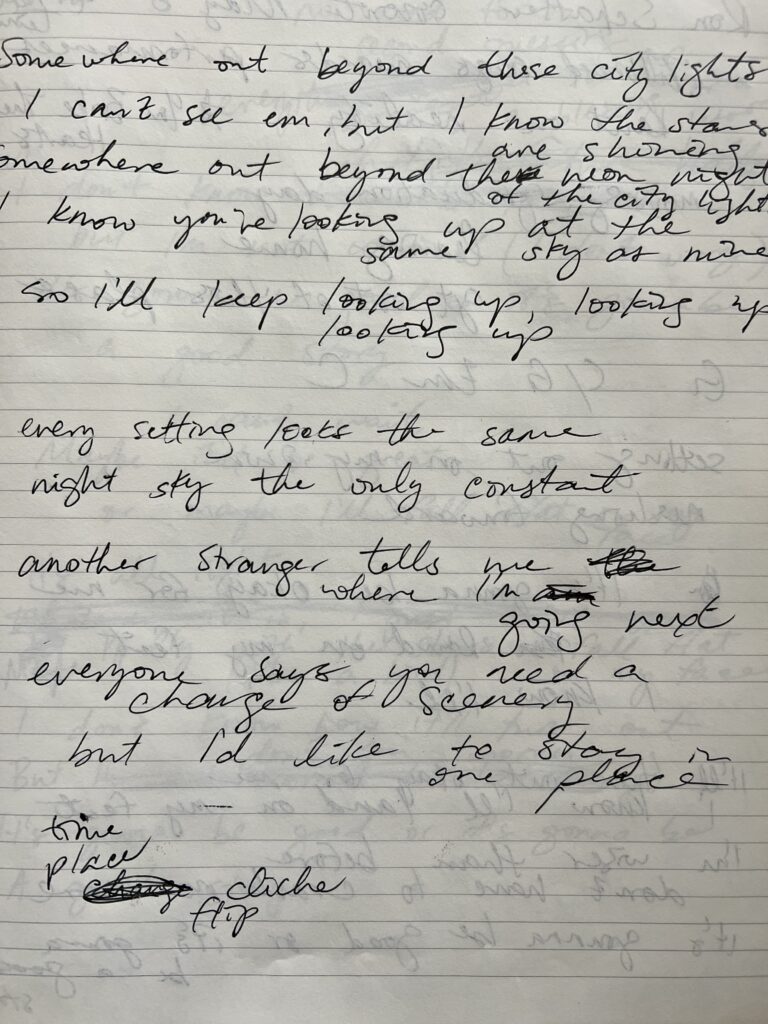 Somewhere out beyond these city lights
I can't see em, but I know the stars
are shining
Somewhere out beyond the neon night
of the city light
I know you're looking up at the
same sky as mine
so I'll keep looking up, looking up
looking up
every setting looks the same
night sky the only constant
another stranger tells me
where I'm
going next
everyone says you need a
change of scenery
but I'd like to stay in
one place
time
place
change cliche
flip